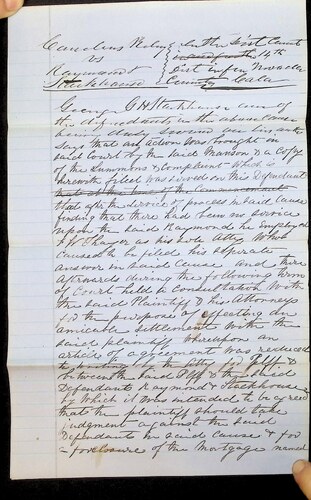 Cornelius
In the Dist Court
vs
14th
Raymond &
Dist in for Nevada
Stackhouse
County Cala
George H Stackhouse one of
the defendants in the above cause
being duly sworn on his oath
says that an action was brought in
said Court by the said & a Copy
of the Summons & Complaint which is
herewith filed was served on this Defendant
that at the time of the Commencement
that after the service of process in said cause
finding that there had been no service
upon the said Raymond he employed
as his sole Atty Who
caused to be filed his separate
answer in said cause and
afterwards during the following term
of Court held a Consultation with
the said Plaintiff & his Attorneys
for the purpose of effecting an
amicable settlement with the
said plaintiff whereupon an
article of agreement was reduced
to writing by the for Plff &
between the said Plff & the said
Defendants Raymond & Stackhouse
by Which it was intended to be agreed
that the plaintiff should take
judgment against the said
Defendants in said cause & for
a foreclosure of the Mortgage named